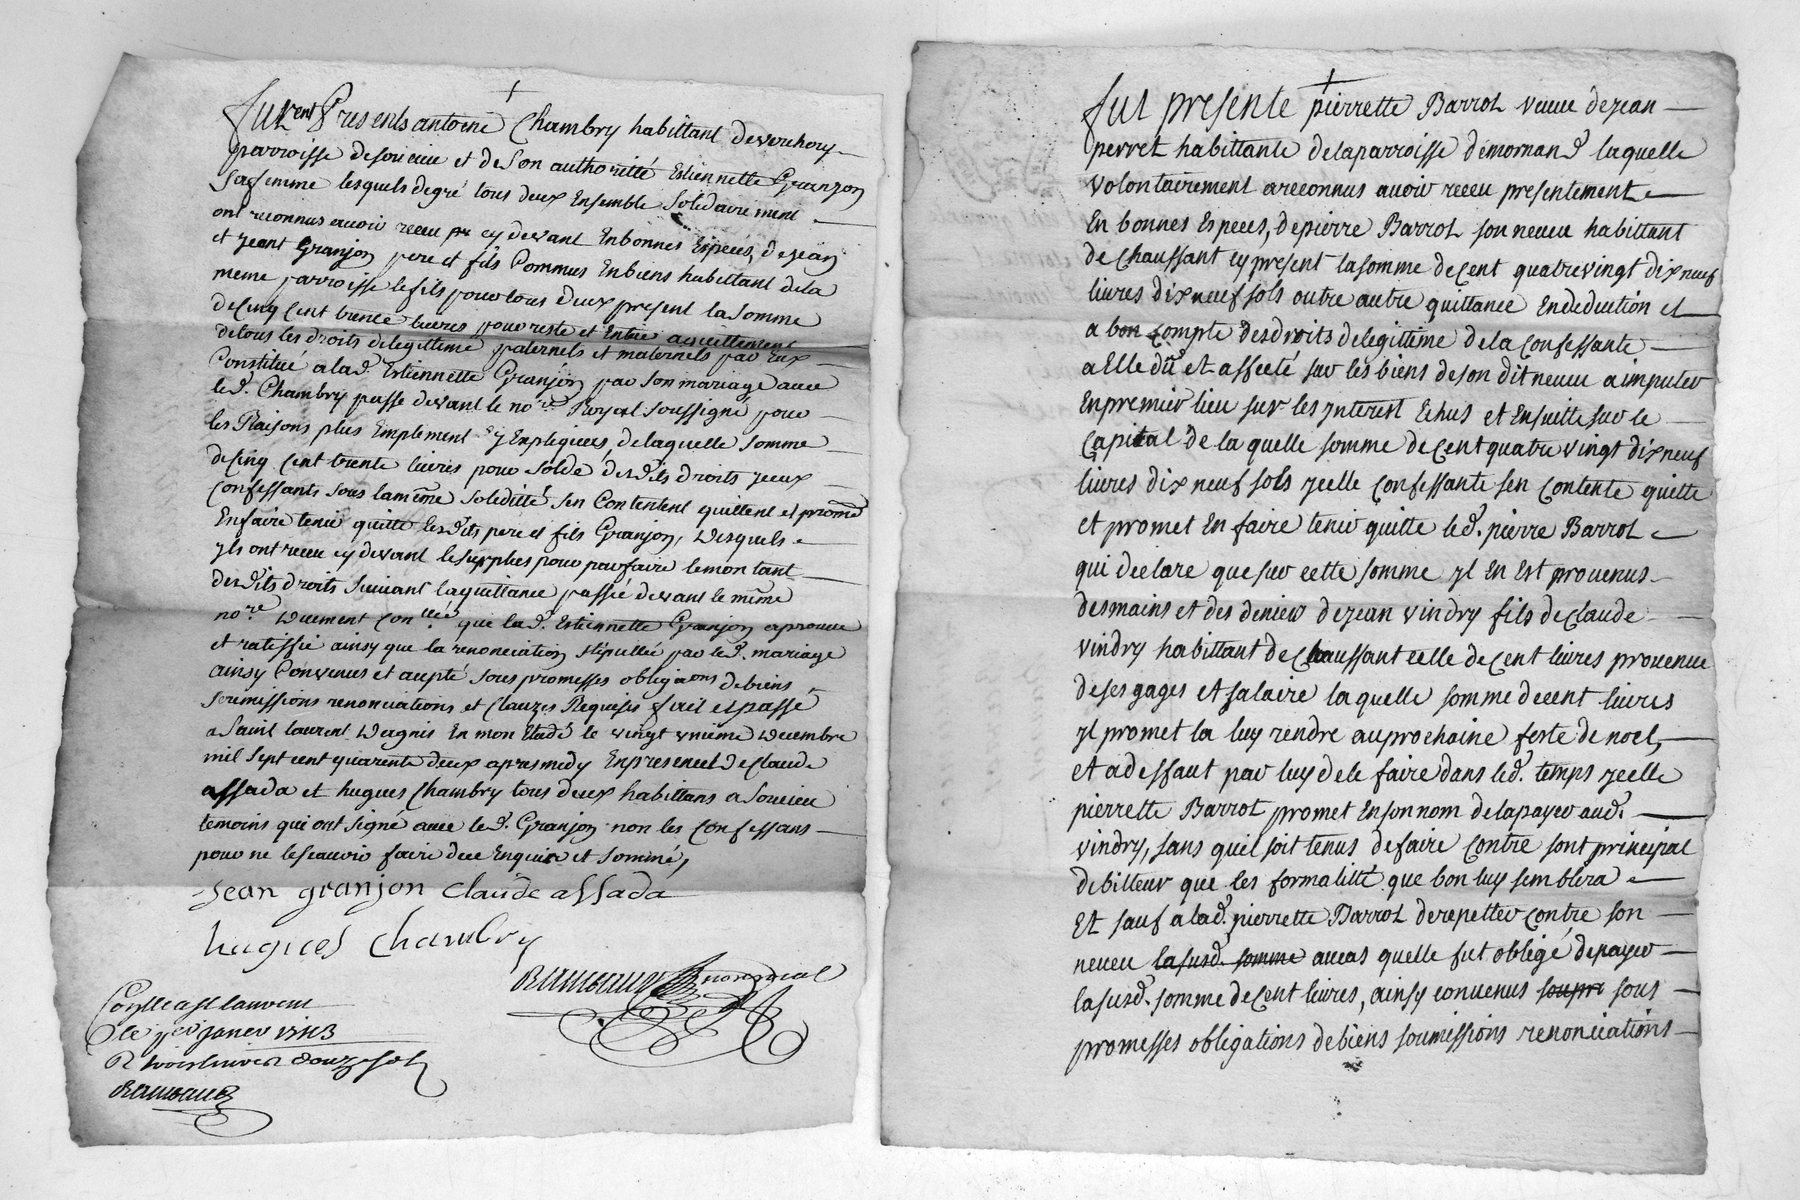 furent Presents antoine Chambry habittant deverchery
parroisse desoucieu et de Son authoritté Estiennette Granjon
Safemme lesquels degré tous deux Ensemble Solidairement
ont reconnus avoir receu cy devant Enbonnes Especes, dejean
et jeant Granjon pere et fils Commus Enbiens habittant dela
meme parroisse lefils pour tous deux present la Somme
decinq Cent trente livres pour reste et Entier acquittement
detous les droits delegittime paternels et maternels par Eux
Constitué alad. Estiennette Granjon par Son mariage avec
led. Chambry passe devant le nore. Royal Soussigné pour
les Raisons plus Emplement y Expliquees, delaquelle Somme
decinq Cent trente livres pour Solde desdits droits jceux
Confessants Sous lameme Soliditté Sen Contentent quittent et promet
Enfaire tenir quitte lesdits pere et fils Granjon, desquels
jls ont receu cy devant leSurplus pour parfaire lemontant
desdits droits Suivant laquittance passée devant le même
nore. Duement Conllée que lad. Estiennette Granjon aprouve
et ratiffie ainsy que la renonciation Stipullée par led. mariage
ainsy Convenus et acepté Sous promesses obligaons debiens
Soumissions renonciations et Clauzes Requises fait et passé
a Saint laurent Dagnis En mon Etude le vingt vnieme Decembre
mil Sept cent quarente deux apresmidy Enpresence DeClaude
assada et hugues Chambry tous deux habittans a Soucieu
temoins qui ont Signé avec led. Granjon non les Confessans
pour ne lesçavoir faire dece Enquis et Sommé,
Jean granjon Claude assada
hugues Chambry
nore royal
Conlle a st laurent
le per janvr 1743
R trois livres douze sols
fut presente pierrette Barrot veuve dejean
perret habittante delaparroisse démornand laquelle
volontairement areconnus avoir receu presentement
En bonnes Especes, depierre Barrot son neveu habittant
de Chaussant cy present lasomme decent quatrevingt dix neuf
livres dix neuf sols outre autre quittance Endeduction et
a bon compte desdroits delegittime dela Confessante
a Elle dû et affecté sur les biens deson dit neveu a imputer
Enpremier lieu sur les jnterest Echus et Ensuitte sur le
Capital de la quelle somme decent quatre vingt dix neuf
livres dix neuf sols jcelle Confessante sen contente quitte
et promet En faire tenir quitte led. pierre Barrot
qui declare que sur cette somme jl En Est provenus
desmains et des deniers dejean vindry fils deClaude
vindry habittant de Chaussant celle decent livres provenue
deses gages et salaire laquelle somme decent livres
jl promet la luy rendre auprochaine feste de noel,
et adeffaut par luy dele faire dans led. temps jcelle
pierrette Barrot promet Enson nom delapayer aud.
vindry, sans quil soit tenus defaire contre sont principal
debitteur que les formalitté que bon luy semblera
Et sauf alad. pierrette Barrot derepetter contre son
neveu lasusd. somme aucas quelle fut obligé depayer
lasusd. somme decent livres, ainsy convenus soupr sous
promesses obligations debiens soumissions renonciations